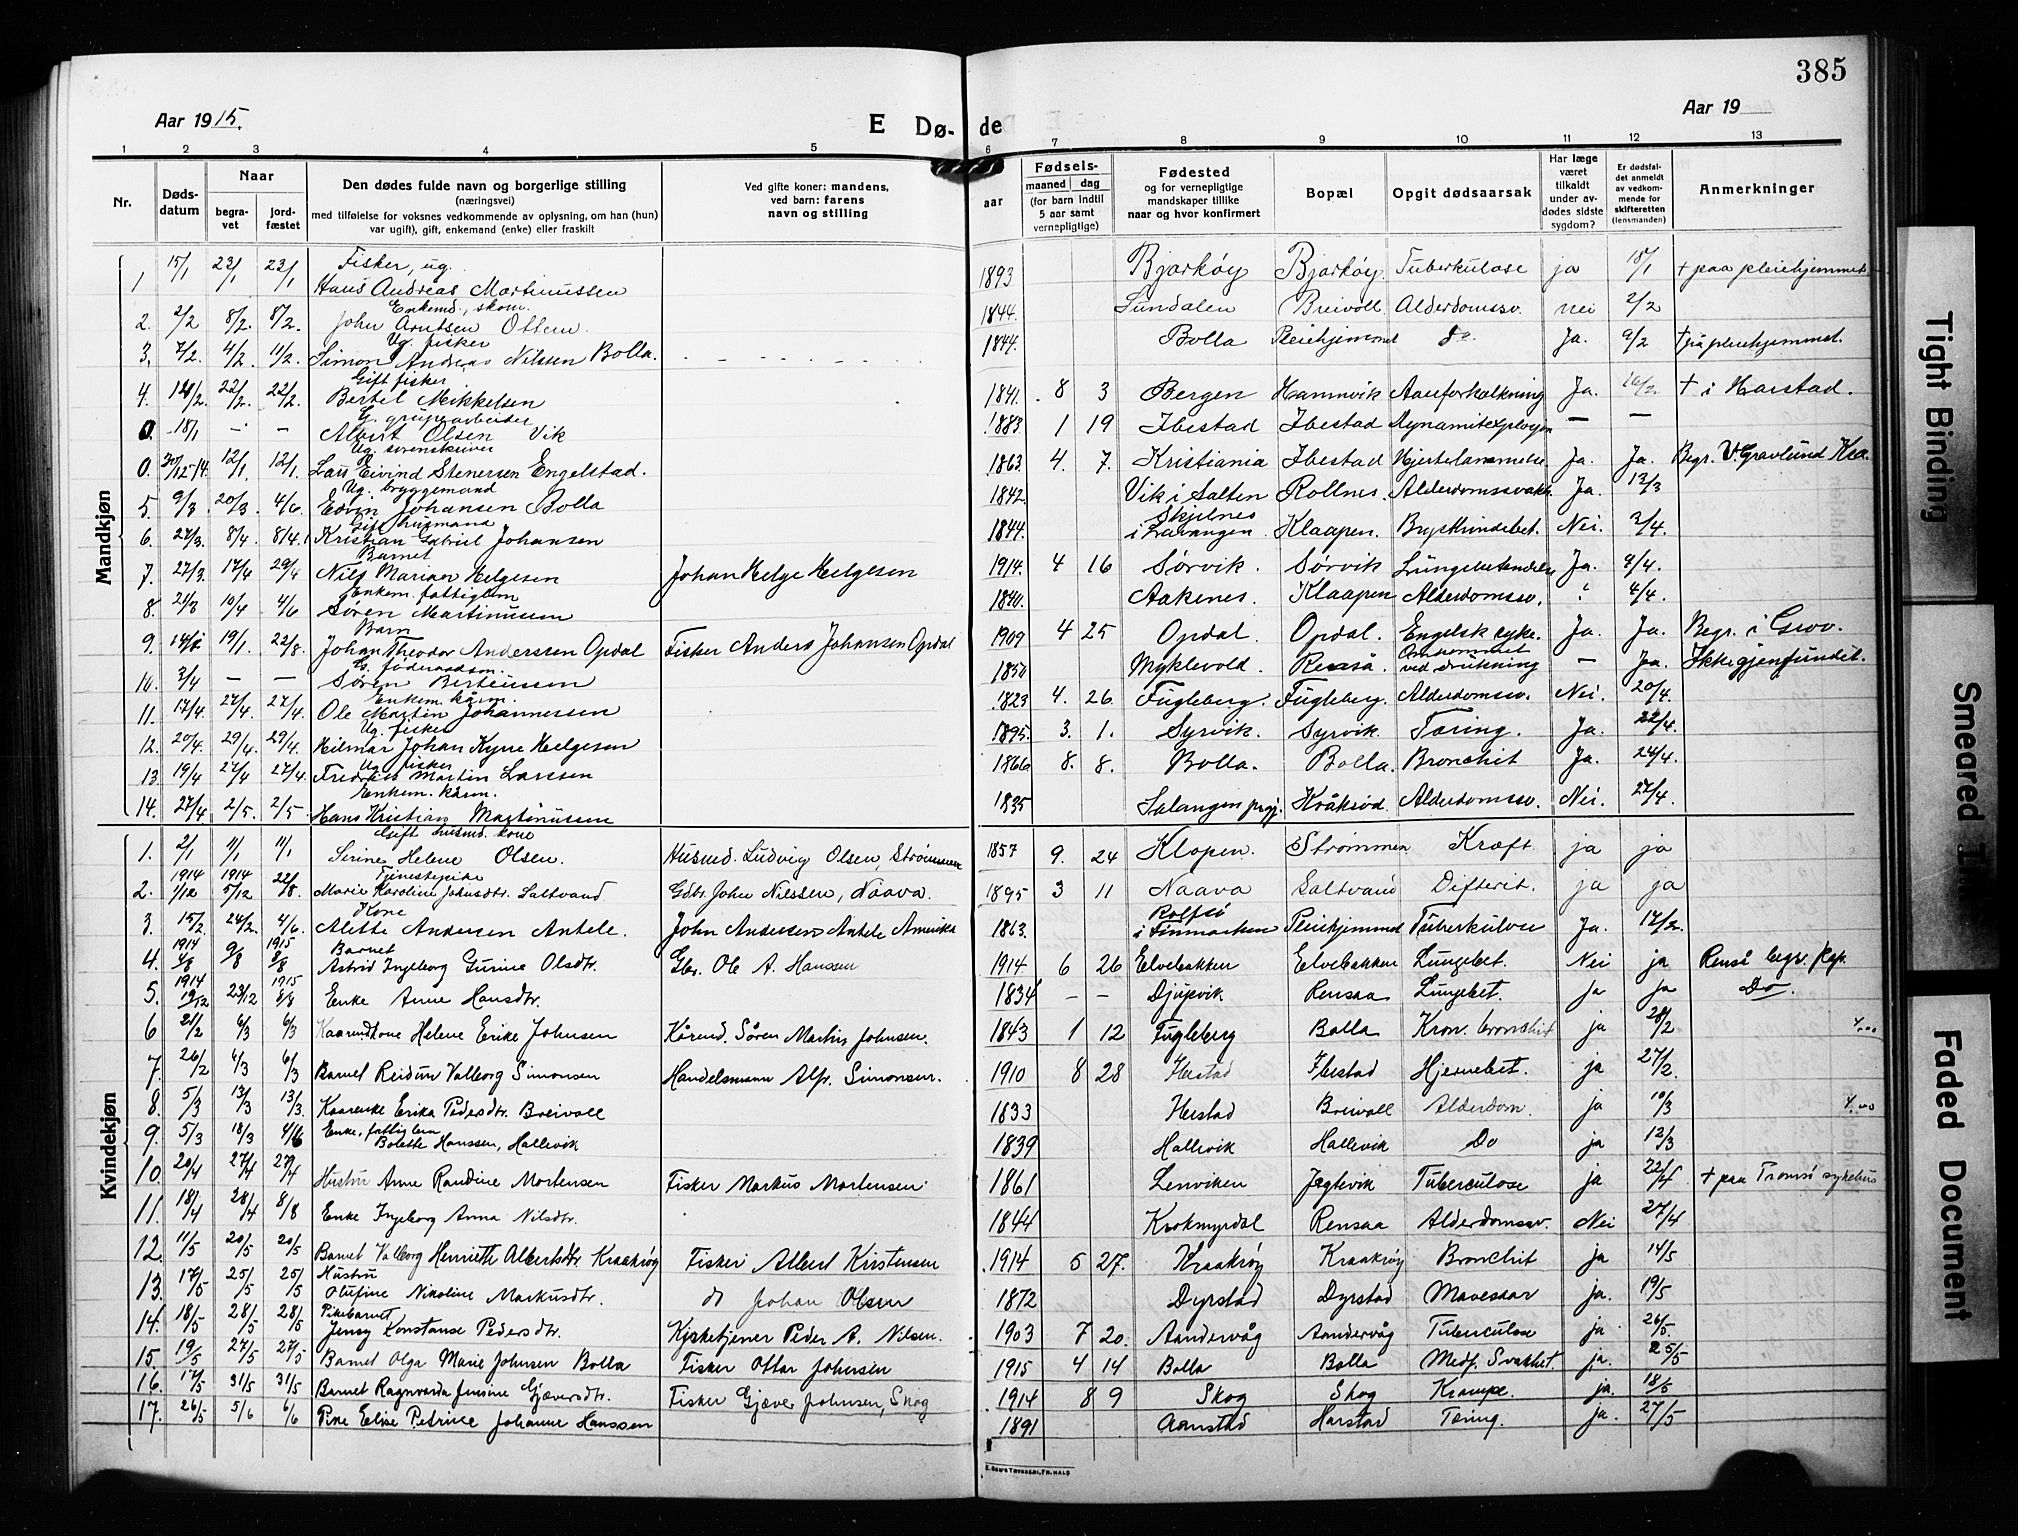 385
Aar 1915.
E Dø-
de
Aar 19
1 2 3 4 5 6 7 8 9 10 11 12 13
Nr.
Døds-
datum
Naar
begra-
vet
jord-
fæstet
Den dødes fulde navn og borgerlige stilling
(næringsvei)
med tilføielse for voksnes vedkommende av oplysning, om han (hun)
var ugift), gift, enkemand (enke) eller fraskilt
Ved gifte koner: mandens,
ved barn: farens
navn og stilling
Fødsels-
aar
maaned | dag
(for barn indtil
5 aar samt
vernepligtige)
Fødested
og for vernepligtige
mandskaper tillike
naar og hvor konfirmert
Bopæl
Opgit dødsaarsak
Har læge
været
tilkaldt
under av-
dødes sidste
sygdom?
Er dødsfal-
det anmeldt
av vedkom-
mende for
skifteretten
(lensmanden)
Anmerkninger
Mandkjøn
Fisker, ug.
1 15/1 23/1 23/1 Hans Andreas Martinussen 1893 Bjarkøy Bjarkøy Tuberkulose ja 18/1 + paa pleiehjemmet
Enkemd., skom.
2. 2/2 8/2. 8/2. John Arntsen Ottem. 1844. Sundalen Breivoll Alderdomssv. nei 2/2
Ug. fisker
3. 7/2. 4/2. 11/2. Simon Andreas Nilssen Bolla. 1844. Bolla Pleiehjemmet do Ja. 9/2 + på pleiehjemmet.
Gift fisker
4. 22/2. 22/2. Bertel Mikkelsen 1841. 8 3 Bergen Hamnvik Aareforkalkning Ja. 10/2. + i Harstad.
G. grubearbeider
0. 18/1 — — Albert Olsen Vik 1883. 1 19 Ibestad Ibestad Dynamitexplosjon — —
Ug. sorenskriver
0. 30/12-14. 12/1. 12/1. Lars Eivind Stenersen Engelstad. 1863. 4. 7. Kristiania Ibestad Hjertelammelse Ja. Ja. Begr. V. Gravlund Kra.
Ug. bryggemand
5. 9/3 20/3. 4/6 Edvin Johansen Bolla 1842. Vik i Salten Rollnes. Alderdomssvakh. Ja. 13/3
Gift husmand
6. 27/3. 8/4. 8/4. Kristian Gabriel Johansen 1844. Skjelnes i Lavangen. Klaapen. Brysthindebet. Nei. 3/4.
Barnet
7. 27/3. 17/4 29/4 Nils Marian Helgesen Johan Helge Helgesen 1914. 4 16 Sørvik. Sørvik Lungebetændelse Ja. 4/4.
Enkem. fattiglem
8. 21/3 10/4 4/6 Søren Martinussen 1840. Aakenes. Klaapen Alderdomssv. ? 4/4.
Barn
9. 14/1 19/1. 22/8. Johan Theodor Anderssen Opdal Fisker Anders Johansen Opdal 1909 4 25 Opdal. Opdal. Engelsk syke. Ja. Ja. Begr. i Grov.
G. føderaadsm.
10. 3/4 — — Søren Berteussen 1850. Myklevold. Renså. Omkommet ved drukning — Ja. Ikke gjenfundet.
Enkem. kårm.
11. 17/4. 27/4. 27/4. Ole Martin Johannessen 1823 4. 26. Fugleberg. Fugleberg. Alderdomssv. Nei. 20/4.
Ug. fisker
12. 20/4. 29/4. 29/4. Hilmar Johan Kyrre Helgesen 1895. 3. 1. Syrvik. Syrvik. Tæring. Ja. 22/4.
Ug. fisker
13 19/4 27/4 27/4. Fredrik Martin Larssen 1866 8. 8. Bolla. Bolla. Bronchit Ja. 24/4.
Enkem. kårm.
14. 27/4 2/5. 2/5. Hans Kristian Martinussen 1835 Salangen prgj. Kråkrød Alderdomssv. Nei. 27/4.
Kvindekjøn
Gift husmd. kone
1. 2/1 11/1 11/1 Serine Helene Olsen. Husmd. Ludvig Olsen, Strømmen 1857 9. 24 Klapen. Strømmen Kræft ja ja
Tjenestepike
2. 1914 1/12 1914 5/12 22/8 Marie Karoline Johnsdtr. Saltvand Gdbr. John Nilssen, Naava. 1895 3 11 Naava Saltvand Difterit. ja ja
Kone
3. 15/2. 24/2. 4/6. Alette Andersen Antele. John Andersen Antele Amerika 1863. Rolfsø i Finmarken Pleiehjemmet Tuberkulose Ja. 17/2.
Barnet
4. 1914 4/8 9/8 1915 8/8 Astrid Ingeborg Gurine Olsdtr. Gbr. Ole A. Hanssen 1914 6 26 Elvebakken Elvebakken Lungebet. Nei ja Renså begr. pl.
5. 1914 19/12 23/12 1915 8/8 Enke Anne Hansdtr. 1834 – – Djupvik Rensaa Lungebet. ja ja Do.
6 21/2 6/3 6/3 Kaarmdkone Helene Erike Johnsen Kårmd. Søren Martin Johnsen. 1843 1 12 Fugleberg Bolla Kron. bronchit ja 28/2 4,00
7. 26/2 4/3 6/3 Barnet Reidun Valborg Simonsen Handelsmann Alfr. Simonsen. 1910 8 28 Ibestad Ibestad Hjernebet. ja 27/2.
8. 5/3 13/3 13/3. Kaarenke Erika Pedersdtr. Breivoll 1833 Ibestad Breivoll Alderdom. ja 10/3 4,00
Enke, fattiglem
9. 5/3 18/3 4/6 Bolette Hanssen, Hallevik 1839 Hallevik Hallevik Do ja 12/3
10. 20/4 27/4 27/4 Hustru Anne Randine Mortensen Fisker Markus Mortensen. 1861 Lenviken Jægtevik Tuberculose ja 22/4 + paa Tromsø sykehus
11. 18/4 28/4 8/8 Enke Ingeborg Anna Nilsdtr. 1844 Krokmyrdal Rensaa Alderdomssv. Nei 27/4
12. 11/5 20/5 20/5 Barnet Valborg Henriette Albertsdtr Kraakrøy Fisker Albert Kristensen 1914 5 27. Kraakrøy Kraakrøy Bronchit ja 14/5
Hustru
13. 17/5 25/5 25/5 Olufine Nikoline Markusdtr. do Johan Olsen 1872 Dyrstad Dyrstad Mavesaar ja. 19/5
Pikebarnet
14. 18/5 28/5 28/5 Jensy Konstanse Pedersdtr. Kirketjener Peder A. Nilsen. 1903 7 20. Aandervåg Aandervåg Tuberculose ja 26/5.
15. 19/5 27/5 27/5. Barnet Olga Marie Johnsen Bolla Fisker Ottar Johnsen 1915 4 14 Bolla Bolla Medf. Svakhet. ja. 25/5
16. 17/5 31/5 31/5 Barnet Ragnvarda Jensine Gjæversdtr. Fisker Gjæver Johnsen, Skog 1914 8 9 Skog Skog Krampe. ja. 18/5
17. 26/5 5/6 6/6 Pike Elise Petrine Johanne Hanssen 1891 Aanstad Harstad Tæring. ja. 27/5
Tight Binding
Smeared
Faded Document